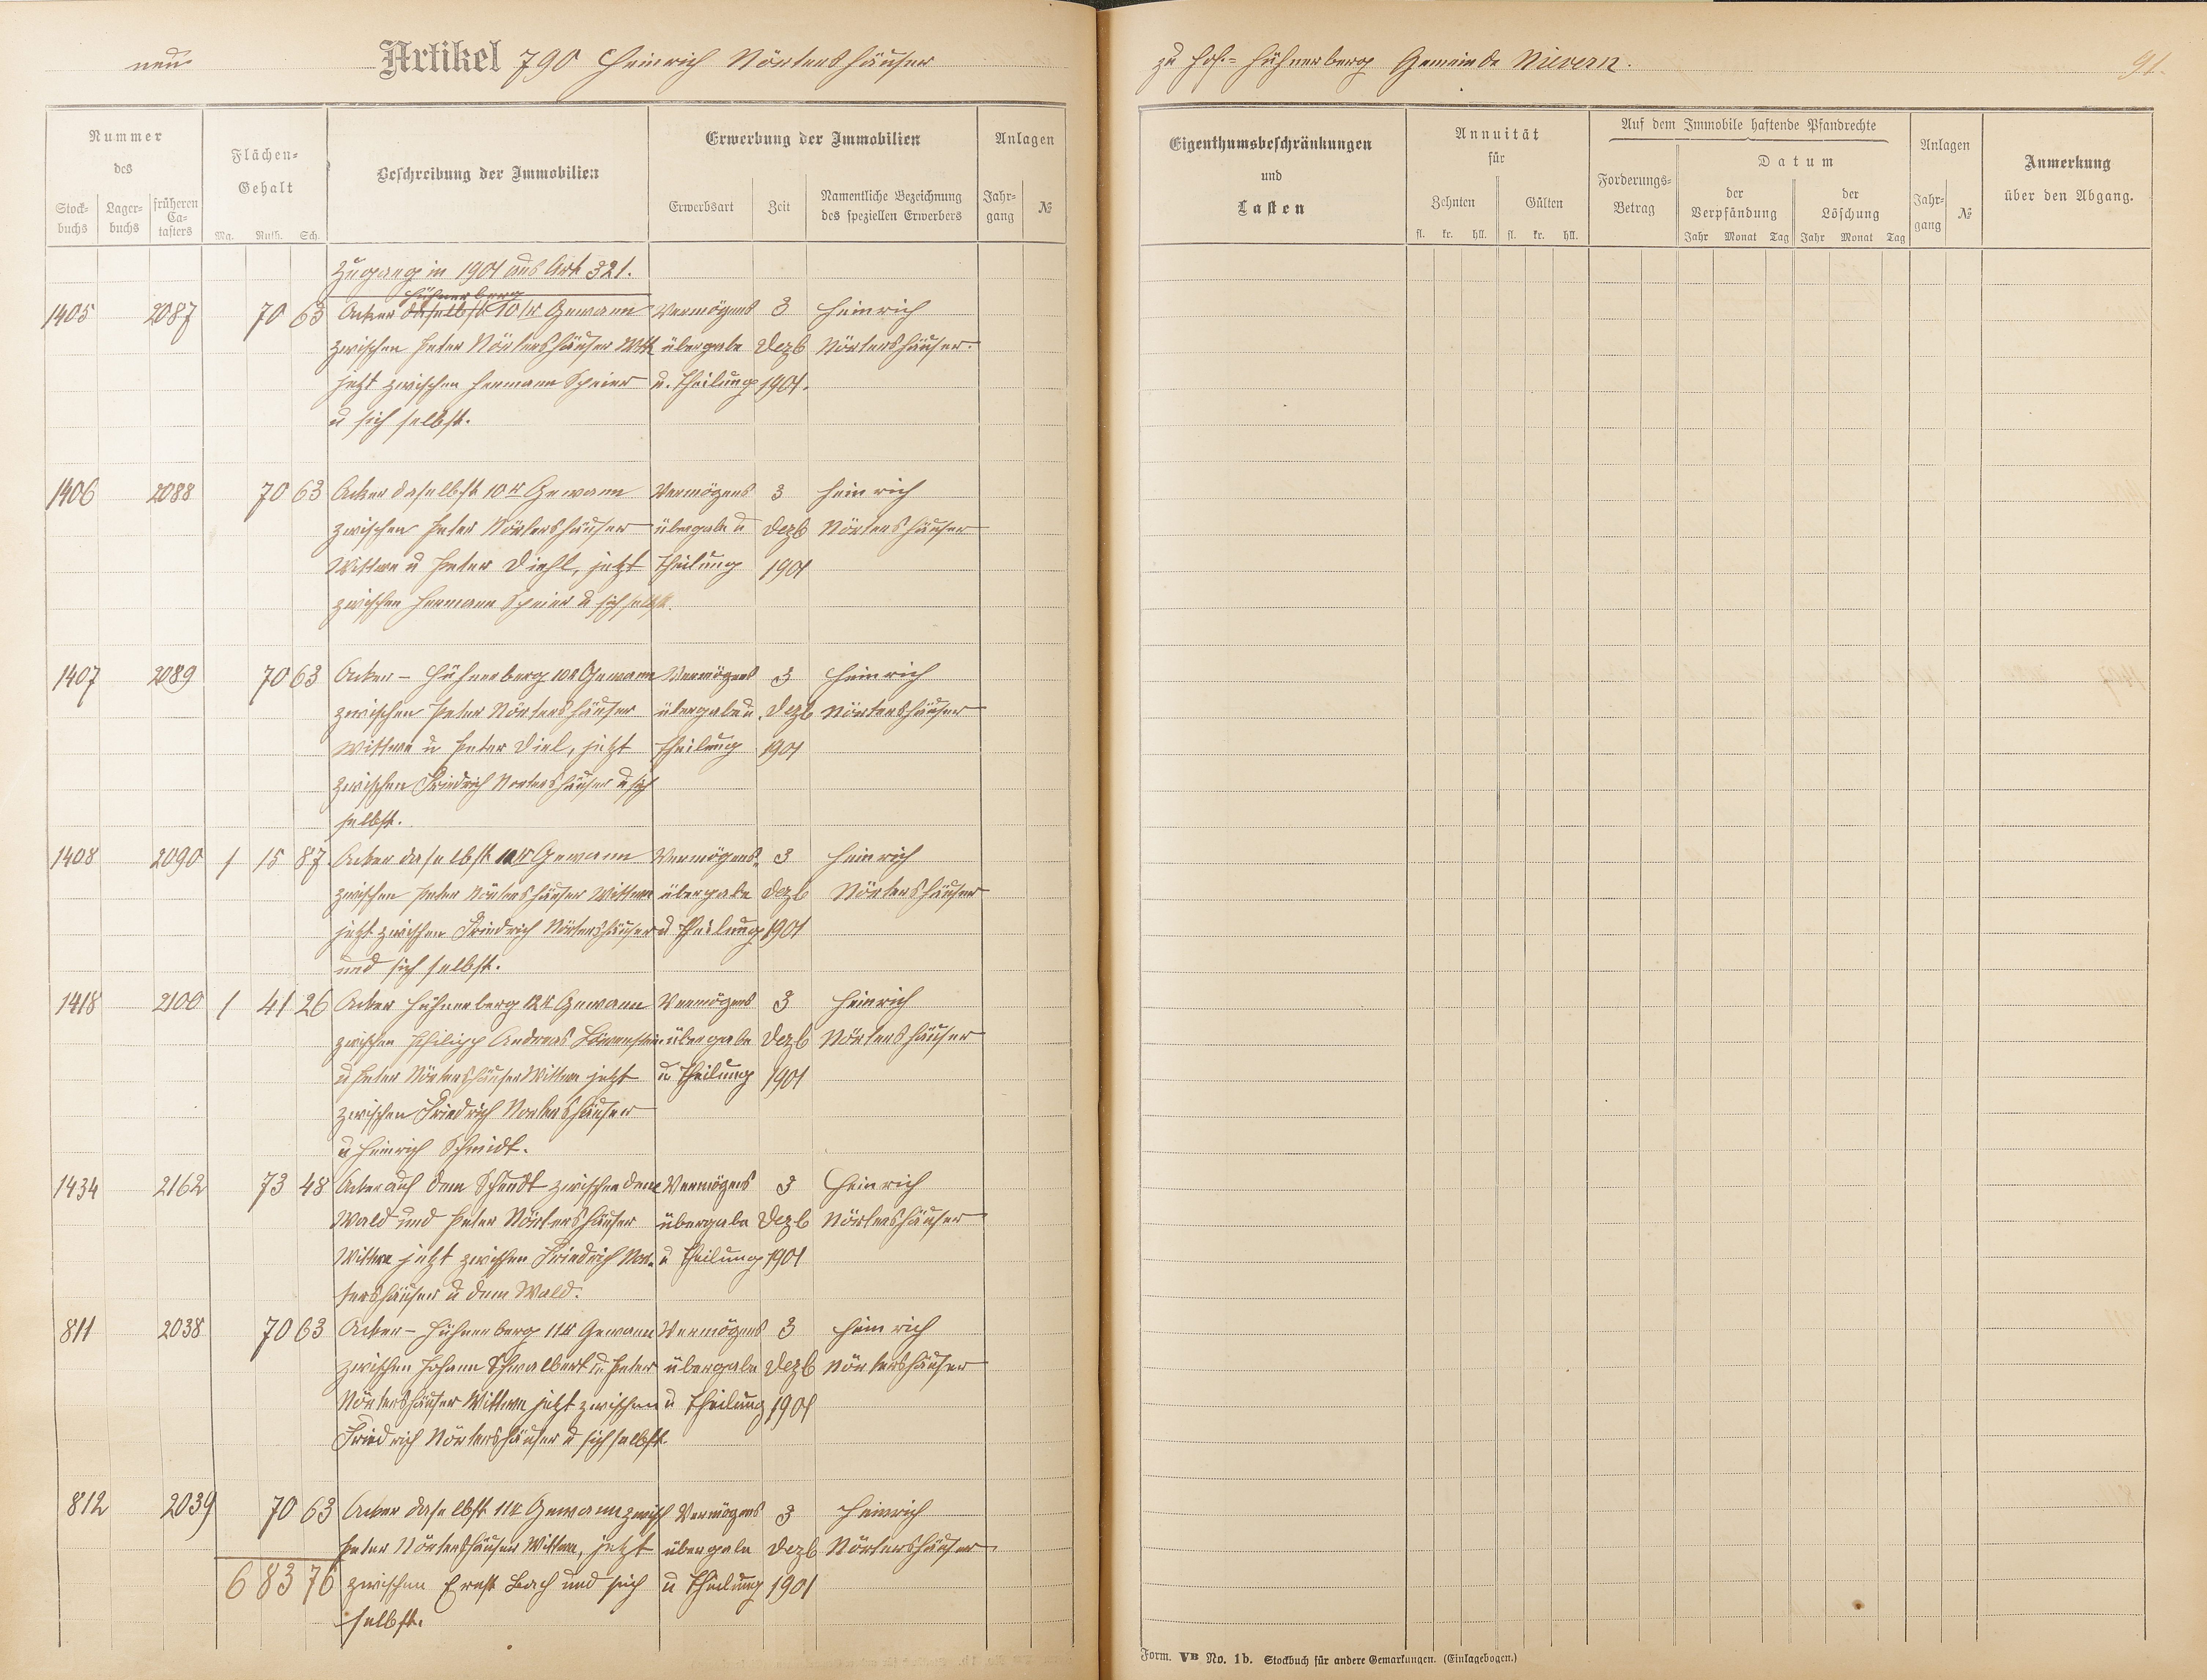 neu
Artikel 790 Heinrich Nörtershäuser
zu Hof-Hühnerberg Gemeinde Nievern.
91.
Nummer des
Stock-buchs
Lager-buchs
früheren Ca-tasters
Flächen-Gehalt
Mg. Ruth. Sch.
Beschreibung der Immobilien
Erwerbung der Immobilien
Erwerbsart
Zeit
Namentliche Bezeichnung des speziellen Erwerbers
Anlagen
Jahr-gang
№
Eigenthumsbeschränkungen
und
Lasten
Annuität
für
Zehnten
Gülten
fl. kr. hll. fl. kr. hll.
Auf dem Immobile haftende Pfandrechte
Forderungs-Betrag
Datum
der Verpfändung
der Löschung
Jahr Monat Tag Jahr Monat Tag
Anlagen
Jahr-gang
№
Anmerkung
über den Abgang.
Zugang in 1901 aus Art. 321.
Hühnerberg
1405 2087 70 63 Acker daselbst 10tr Gewann Vermögens 3 Heinrich
zwischen Peter Nörtershäuser Wtt übergabe Dezb Nörtershäuser.
jetzt zwischen Hermann Speier u. Theilung 1901.
u sich selbst.
1406 2088 70 63 Acker daselbst 10tr Gewann Vermögens 3 Heinrich
zwischen Peter Nörtershäuser übergabe u Dezb Nörtershäuser
Wittwe u Peter Diehl, jetzt Theilung 1901
zwischen Hermann Speier u sich selbst.
1407 2089 70 63 Acker - Hühnerberg 10tr Gewann Vermögens 3 Heinrich
zwischen Peter Nörtershäuser übergabe u. Dezb Nörtershäuser
Wittwe u Peter Diel, jetzt Theilung 1901
zwischen Friedrich Nortershäuser u sich
selbst.
1408 2090 1 15 87 Acker daselbst 10tr Gewann Vermögens 3 Heinrich
zwischen Peter Nörtershäuser Wittwe übergabe Dezb Nörtershäuser
jetzt zwischen Friedrich Nörtershäuser u Theilung 1901
und sich selbst.
1418 2100 1 41 26 Acker Hühnerberg 12tr Gewann Vermögens 3 Heinrich
zwischen Philipp Andreas Löwenstein übergabe Dezb Nörtershäuser
u Peter Nörtershäuser Wittwe jetzt u Theilung 1901
zwischen Friedrich Nortershäuser
u Heinrich Schmidt.
1434 2162 73 48 Acker auf dem zwischen dem Vermögens 3 Heinrich
Wald und Peter Nörtershäuser übergabe Dezb Nörtershäuser
Wittwe jetzt zwischen Friedrich Nor- u Theilung 1901
tershäuser u dem Wald.
811 2038 70 63 Acker - Hühnerberg 11tr Gewann Vermögens 3 Heinrich
zwischen Johann Schwalbert u. Peter übergabe Dezb Nörtershäuser
Nörtershäuser Wittwe jetzt zwischen u Theilung 1901
Friedrich Nörtershäuser u sich selbst
812 2039 70 63 Acker daselbst 11tr Gewann zwisch Vermögens 3 Heinrich
Peter Nörtershäuser Wittwe, jetzt übergabe Dezb Nörtershäuser
6 83 76 zwischen Ernst Bach und sich u Theilung 1901
selbst.
Form. VB No. 1b. Stockbuch für andere Gemarkungen. (Einlagebogen.)